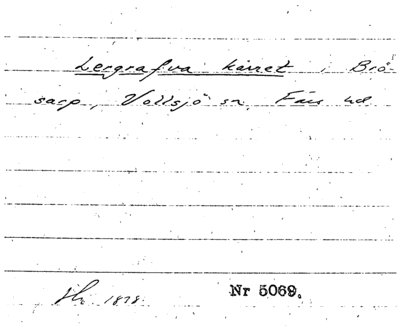 Lergrafva kärret, i Brö-
sarp, Vollsjö sn. Färs hd
1878. Nr 5069.